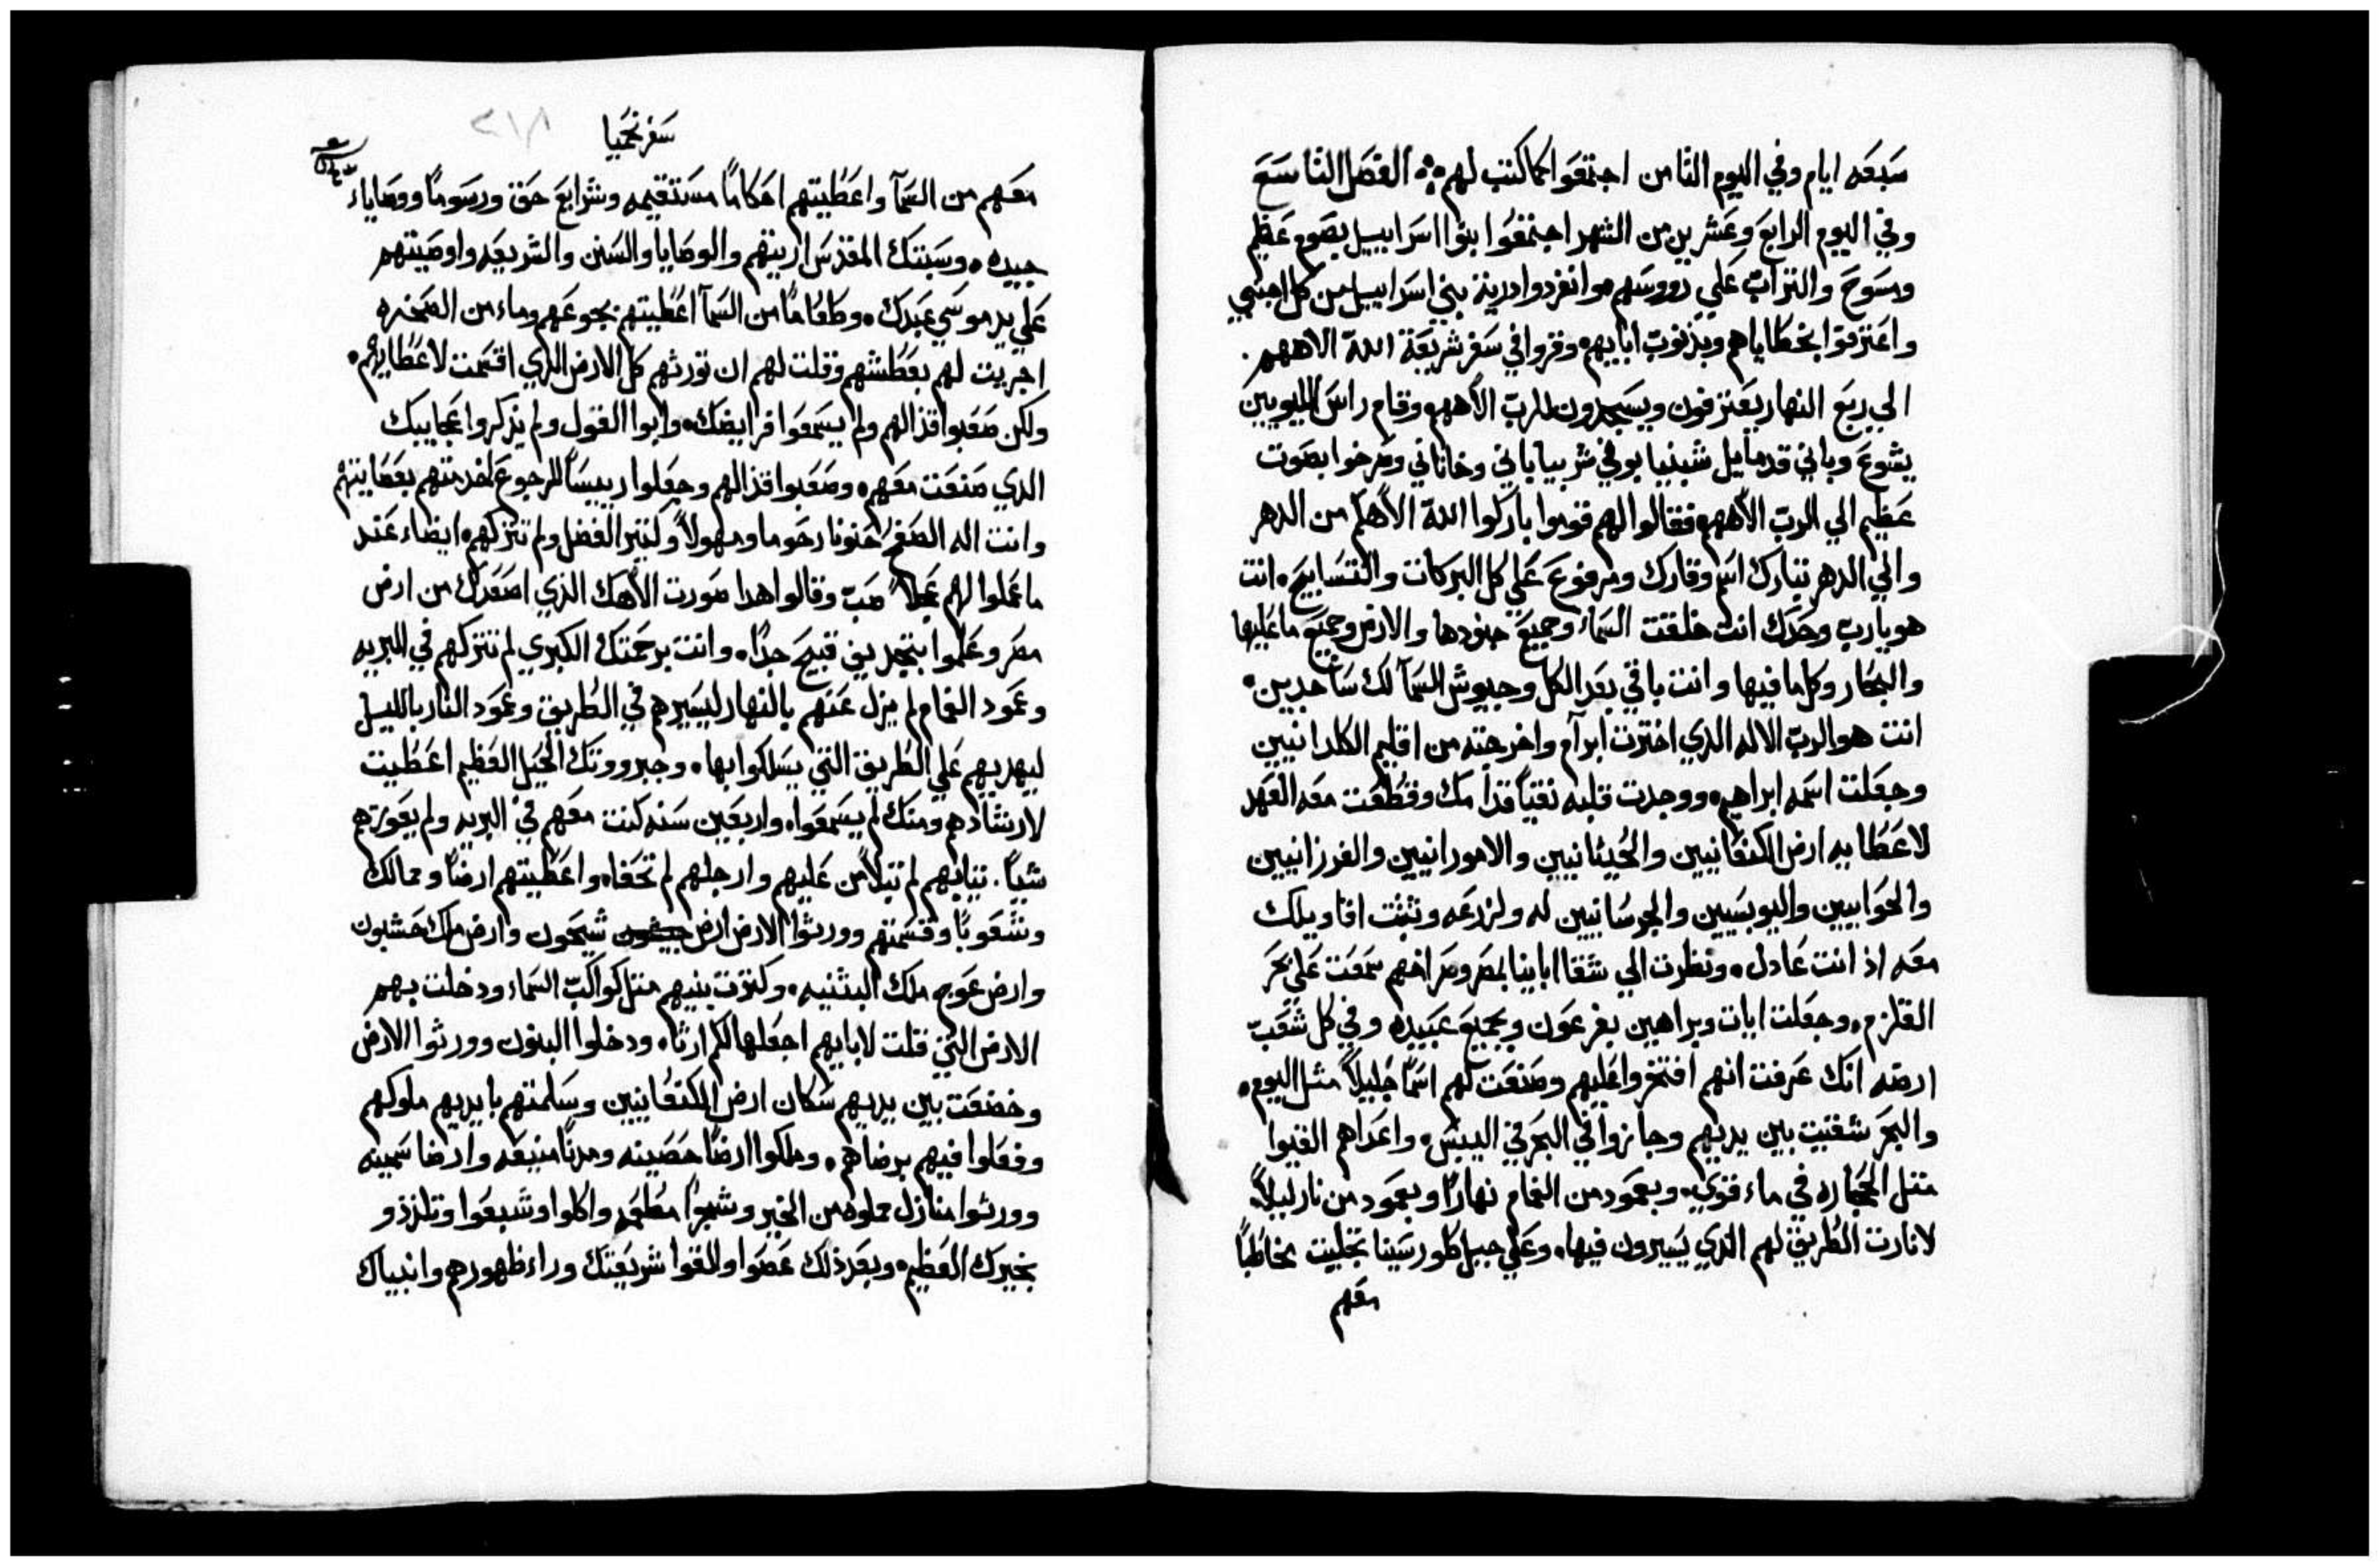 سبعه ايام وفي اليوم الثامن اجتمعوا كما كتب لهم الفصل التاسع
وفي اليوم الرابع وعشرين من الشهر اجتمعوا بنوا اسراييل بصوم عظيم
ومسوح والتراب علي رووسهم وانفردوا درية بني اسراييل من كل اجنبي
واعترفوا بخطاياهم وبذنوب ابايهم وقروا في سفر شريعة الله الاههم.
الي ربع النهار يعترفون ويسجدون للرب الاههم وقام راس الليويين
يشوع وباني قدمايل شبنيا بوني شربيا باني وخاناني وصرخوا بصوت
عظيم الي الرب الاههم فقالوا لهم قوموا باركوا الله الاهكم من الدهر
والي الدهر تبارك اسم وقارك ومرفوع علي كل البركات والتسابيح انت
هو يا رب وحدك انت خلقت السماء وجميع جنودها والارض وجميع ما عليها
والبحار وكل ما فيها وانت باقي بعد الكل وجيوش السمآ لك ساجدين
انت هو الرب الاله الذي اخترت ابرآم واخرجته من اقليم الكلدانيين
وجعلت اسمه ابراهيم ووجدت قلبه نقياً قدامك وقطعت معه العهد
لاعطا بيه ارض الكنعانيين والحيثانيين والامورانيين والفرزانيين
والحوايين واليوبسيين والجرسانيين له ولزرعه وتثبت اقاويلك
معه اذ انت عادل ونظرت الي شقا ابايينا بمصر وصراخهم سمعت علي بحر
القلزم وجعلت ايات وبراهين بفرعون وبجميع عبيده وفي كل شعب
ارضه انك عرفت انهم افتخروا عليهم وصنعت لهم اسماً جليلاً مثل اليوم
والبحر شقيت بين يديهم وجازوا في البحر في اليبس واعداهم القيوا
متل الحجاره في ماء قوي وبعمود من الغمام نهاراً وبعمود من نار ليلاً
لانارت الطريق لهم الذي يسيرون فيها وعلي جبل طور سينا تجليت مخاطباً
معهم
سفر نحميا
معهم من السمآ واعطيتهم احكاماً مستقيمه وشرايع حق ورسوماً ووصاياء
جيده وسبتك المقدس اريتهم والوصايا والسنن والشريعه واوصيتهم
علي يد موسي عبدك وطعاماً من السمآ اعطيتهم بجوعهم وماء من الصخره
اجريت لهم بعطشهم وقلت لهم ان تورثهم كل الارض الذي اقسمت لاعطايهم
ولكن صعبوا قذالهم ولم يسمعوا فرايضك وابوا القول ولم يذكروا عجايبك
الذي صنعت معهم وصعبوا قذالهم وجعلوا رييساً للرجوع لخدمتهم بعصايتهم
وانت اله الصفح حنونا رحوما ومهولاً وكتير الفضل ولم تتركهم ايضاء عند
ما عملوا لهم عجلاً صب وقالوا هدا صورت الاهك الذي اصعدك من ارض
مصر وعملوا بتجديف قبيح جداً وانت برحمتك الكبري لم تتركهم في البريه
وعمود الغمام لم يزل عنهم بالنهار ليسيرهم في الطريق وعمود النار بالليل
ليهديهم علي الطريق التي يسلكوا بها وجبرووتك الخيل العظيم اعطيت
لارشادهم ومنك لم يسمعوا واربعين سنه كنت معهم في البريه ولم يعوزهم
شياً. تيابهم لم تبلا من عليهم وارجلهم لم تحفاه واعطيتهم ارضاً وممالك
وشعوباً وقسمتهم وورثوا الارض ارض شيحون وارض ملك حشبون
وارض عوج ملك البثنيه وكترت بنيهم متل كواكب السماء ودخلت بهم
الارض التي قلت لابايهم اجعلها لكم ارثاً ودخلوا البنون وورثوا الارض
وخضعت بين يديهم سكان ارض الكنعانيين وسلمتهم بايديهم ملوكهم
وفعلوا فيهم برضاهم وملكوا ارضاً حصينه ومدناً منيعه وارضا سمينه
وورثوا منازل مملوه من الخير وشجراً مطعمه واكلوا وشبعوا وتلذذو
بخيرك العظيم وبعد ذلك عصوا والقوا شريعتك وراء ظهورهم وانبياك